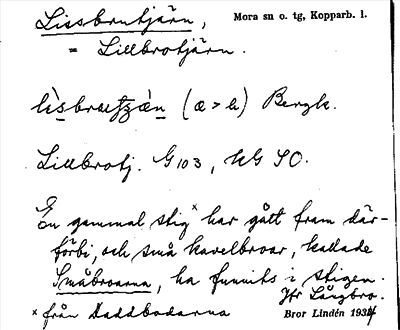 Lissbrutjärn, Mora sn o. tg, Kopparb. l.
= Lillbrotjärn.
(æ > ä) Bergk.
Lillbrotj. G103, KG SO.
En gammal stig x har gått fram där-
förbi, och små kavelbroar, kallade
Småbroarna, ha funnits i stigen.
Jfr Långbro.
x från Daddbodarna Bror Lindén 1934